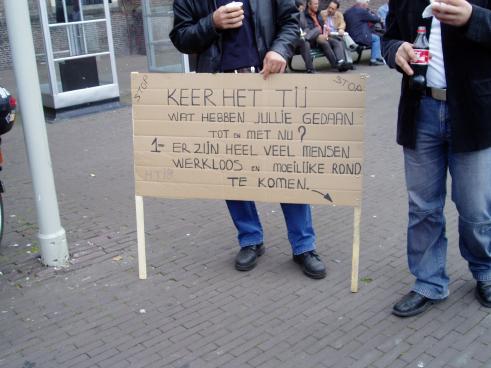 STOP
STOP
KEER HET TIJ
WAT HEBBEN JULLIE GEDAAN
TOT EN MET NU?
1- ER ZIJN HEEL VEEL MENSEN
WERKLOOS EN MOEILIJKE ROND
TE KOMEN.